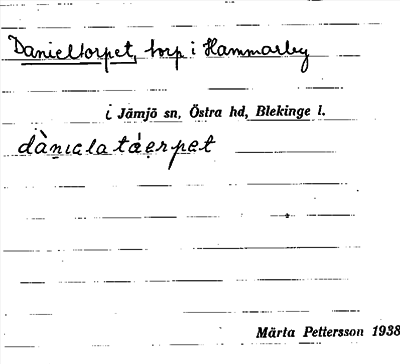 Danieltorpet, torp i Hammarby
i Jämjö sn, Östra hd, Blekinge l.
dànịalatáẹrpet
Märta Pettersson 1938